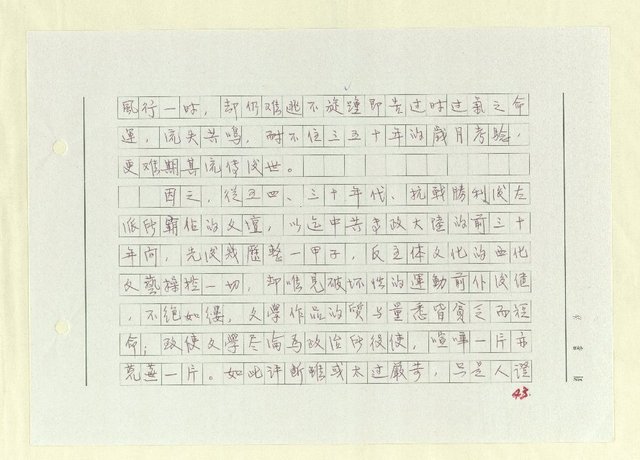 風行一时，却仍难逃不旋踵即告过时过氣之命
運，流失共鳴，耐不住三五十年的歲月考驗，
更难期其流传後世。
因之，從五四、三十年代、抗戰勝利後左
派所霸佔的文壇，以迄中共主政大陸的前三十
年间，先後幾歷整一甲子，反主体文化的西化
文藝操控一切，却唯見破坏性的運動前仆後継
，不绝如縷，文學作品的質与量悉皆貧乏而短
命；致使文學尽淪為政治所役使，喧嘩一片亦
荒蕪一片。如此评断雖或太过嚴苛，只是人證
43.